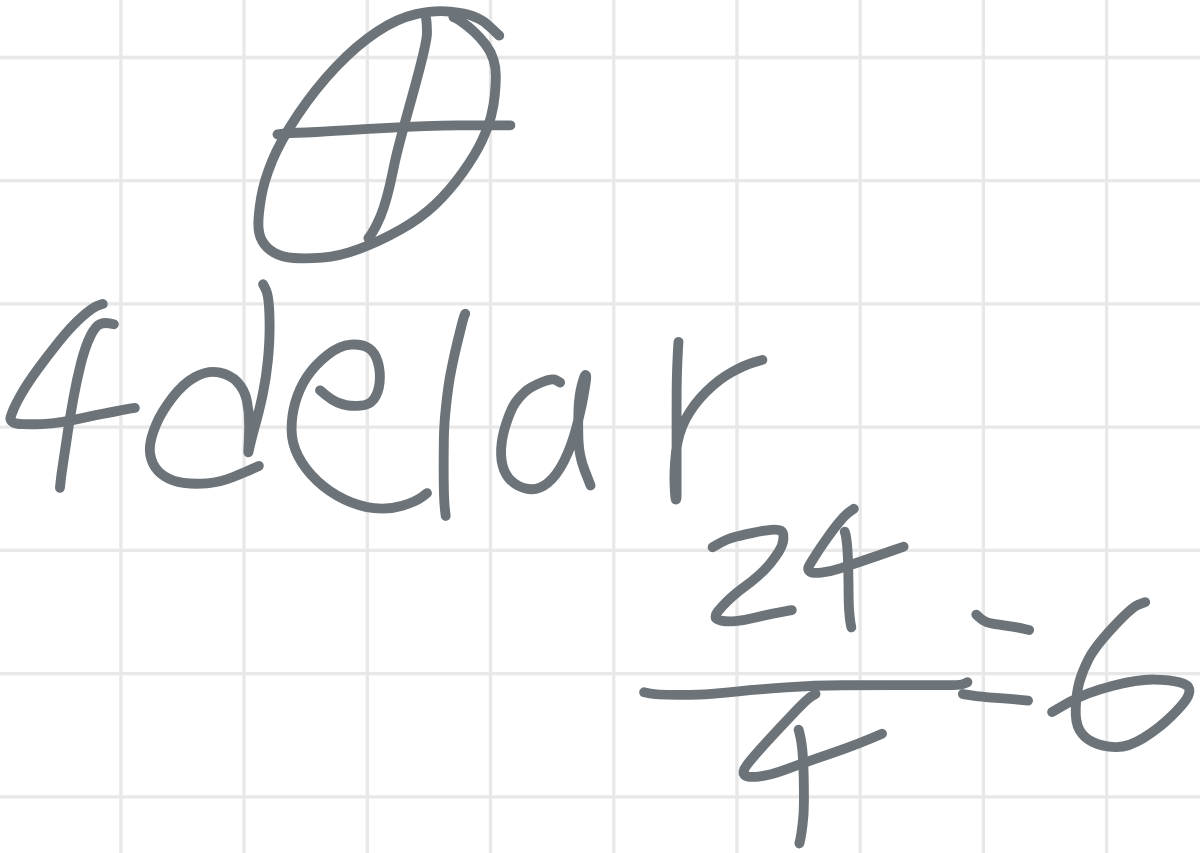 4 delar
24/4 = 6